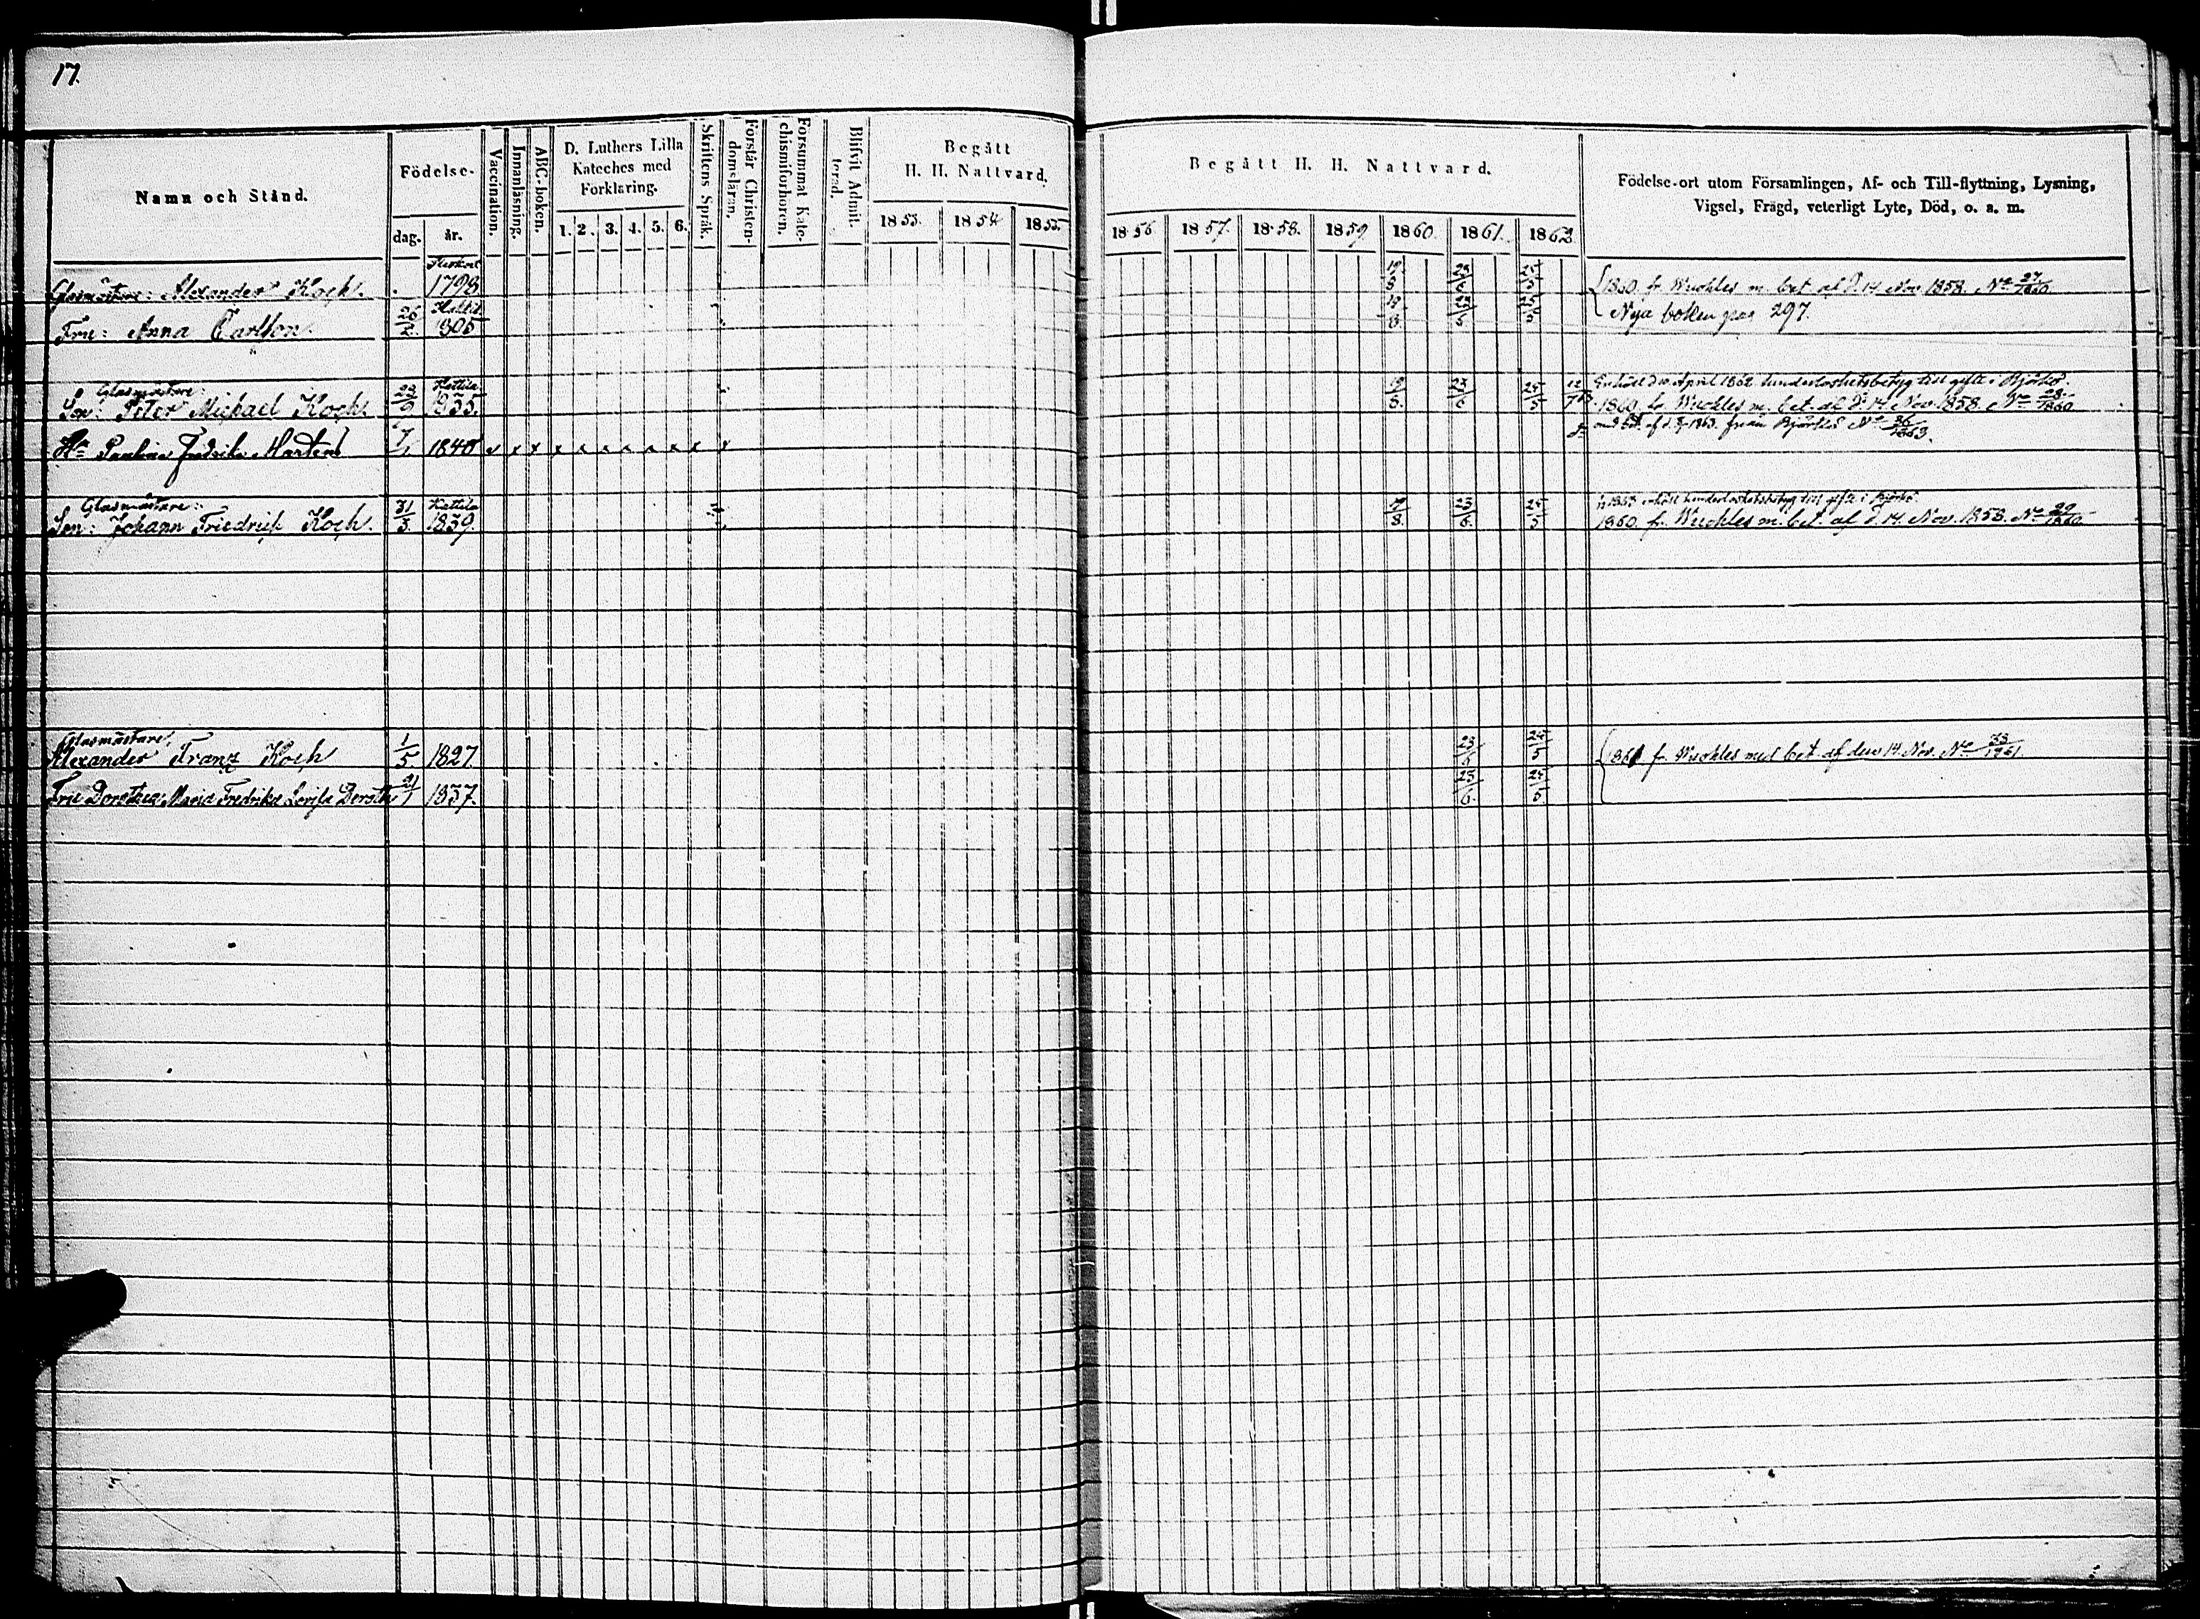 17.
Namn och Stånd.
Födelse-
dag.
år.
Vaccination.
Innanläsning.
ABC-boken.
D. Luthers Lilla
Kateches med
Förklaring.
1. 2. 3. 4. 5. 6.
Skriftens Språk.
Förstår Christen-
domsläran.
Försummat Kate-
chismiförhören.
Blifvit Admit-
terad.
Begått
H. H. Nattvard.
1853. 1854 1855.
Begått H. H. Nattvard.
1856 1857. 1858. 1859 1860. 1861. 1862
Födelse-ort utom Församlingen, Af- och Till-flyttning, Lysning,
Vigsel, Frägd, veterligt Lyte, Död, o. a. m.
Glasmästare: Alexander Koch. 1798 19/8 23/6 25/5 1860 fr. m. bet. af d. 14 Nov. 1858. No 27/1860
Fru: Anna Carlson 1805 19/8 23/6 25/5 Nya boken pag 297.
Glasmästare: Kattila April 1862 hinderlöshetsbetyg till gifte i Björkö.
Son: Peter Michael Koch. 22/9 1835. 19/8 23/6 25/5 1860 fr. m. bet. af d. 14 Nov. 1858. No 28/1860
1863. från Björkö No 36/1863.
Hu Paulina Fredrika Martens 7/1 1840 v x x x x x x x x x x
Glasmästare: Kattila 1863 hinderlöshetsbetyg till gifte i Björkö
Son: Johann Friedrich Koch. 31/3 1839. 23/6. 25/5 1860. fr. m. bet. af d. 14. Nov. 1858. No 29/1860
Glasmästare,
Alexander Franz Koch 1/5 1827. 23/6 25/5 1861 fr. med bet. af den 14. Nov. No 73/1861
Fru Dorothea Maria Fredrika Lovisa 21/1 1837. 23/6. 25/5